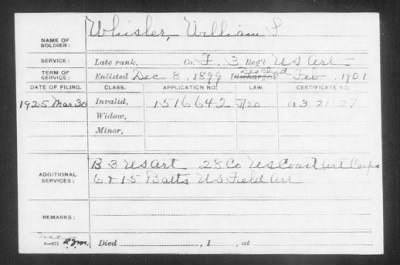 NAME OF SOLDIER: Whisler, William
SERVICE: Late rank, Co. F, 3 Reg't US Art
TERM OF SERVICE: Enlisted Dec 8, 1899 Discharged Feb , 1901
DATE OF FILING. CLASS. APPLICATION NO. LAW. CERTIFICATE NO.
1925 Mar 30 Invalid, 1516642
Widow,
Minor,
ADDITIONAL SERVICES: B 3 US Art 28 Co US Coast Art Corps
6 & 15 Batts US Field Art
REMARKS:
Died , 1 , at